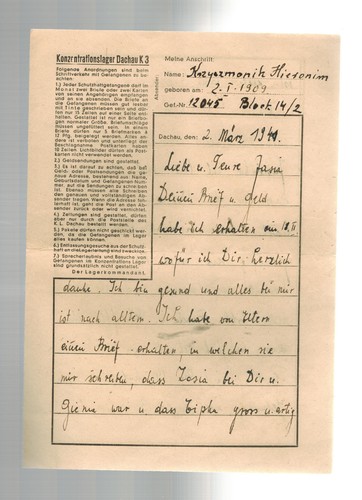 Konzentrationslager Dachau K 3
Folgende Anordnungen sind beim
Schriftverkehr mit Gefangenen zu be-
achten:
1.) Jeder Schutzhaftgefangene darf im
Monat zwei Briefe oder zwei Karten
von seinen Angehörigen empfangen
und an sie absenden. Die Briefe an
die Gefangenen müssen gut lesbar
mit Tinte geschrieben sein und dür-
fen nur 15 Zeilen auf einer Seite ent-
halten. Gestattet ist nur ein Briefbo-
gen normaler Größe. Briefumschläge
müssen ungefüttert sein. In einem
Briefe dürfen nur 5 Briefmarken à
12 Pfg. beigelegt werden. Alles an-
dere ist verboten und unterliegt der
Beschlagnahme. Postkarten haben
10 Zeilen. Lichtbilder dürfen als Post-
karten nicht verwendet werden.
2.) Geldsendungen sind gestattet.
3.) Es ist darauf zu achten, daß bei
Geld- oder Postsendungen die ge-
naue Adresse, bestehend aus Name,
Geburtsdatum und Gefangenen-Nummer,
auf die Sendungen zu schreiben
ist.
4.) Zeitungen sind gestattet, dürfen
aber nur durch die Poststelle des
K. L. Dachau bestellt werden.
5.) Pakete dürfen nicht geschickt wer-
den, da die Gefangenen im Lager
alles kaufen können.
6.) Entlassungsgesuche aus der Schutz-
haft an die Lagerleitung sind zwecklos.
7.) Sprecherlaubnis und Besuche von
Gefangenen im Konzentrations-Lager
sind grundsätzlich nicht gestattet.
Der Lagerkommandant.
Absender:
Meine Anschrift:
Name: Krzyszmonik Hieronim
geboren am: 2. I. 1909
Gef.-Nr. 12045 Block 14/2
Dachau, den 2. März 1941.
Liebe u. Teure Zasia
Deinen Brief u. Geld
habe ich erhalten am II
wofür ich Dir herzlich
danke. Ich bin gesund und alles bei mir
ist nach altem. Ich habe von Eltern
einen Brief erhalten, in welchen sie
mir schreiben, dass Zosia bei Dir u.
Gienia war u. dass gross u. artig